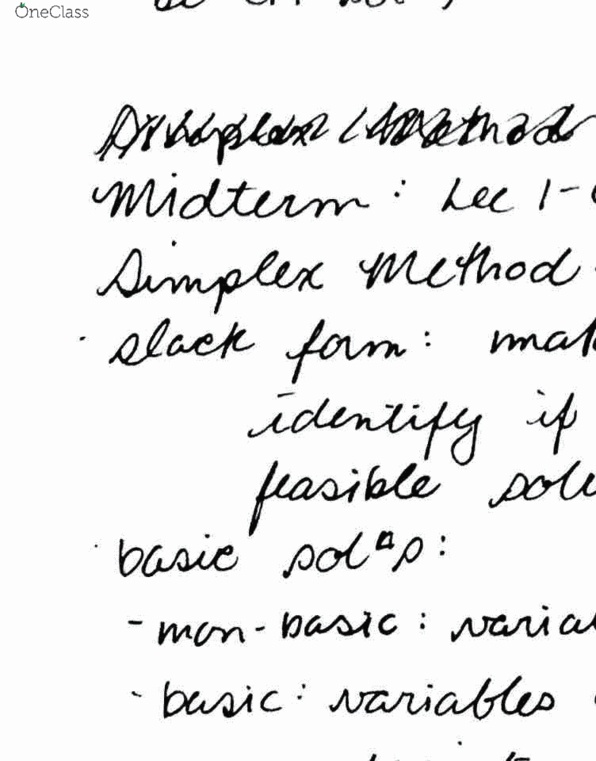 OneClass
Midterm : Lec 1-
Simplex Method
· slack form : mat
identify if
feasible solu
· basic solⁿs :
- non-basic : varia
- basic : variables